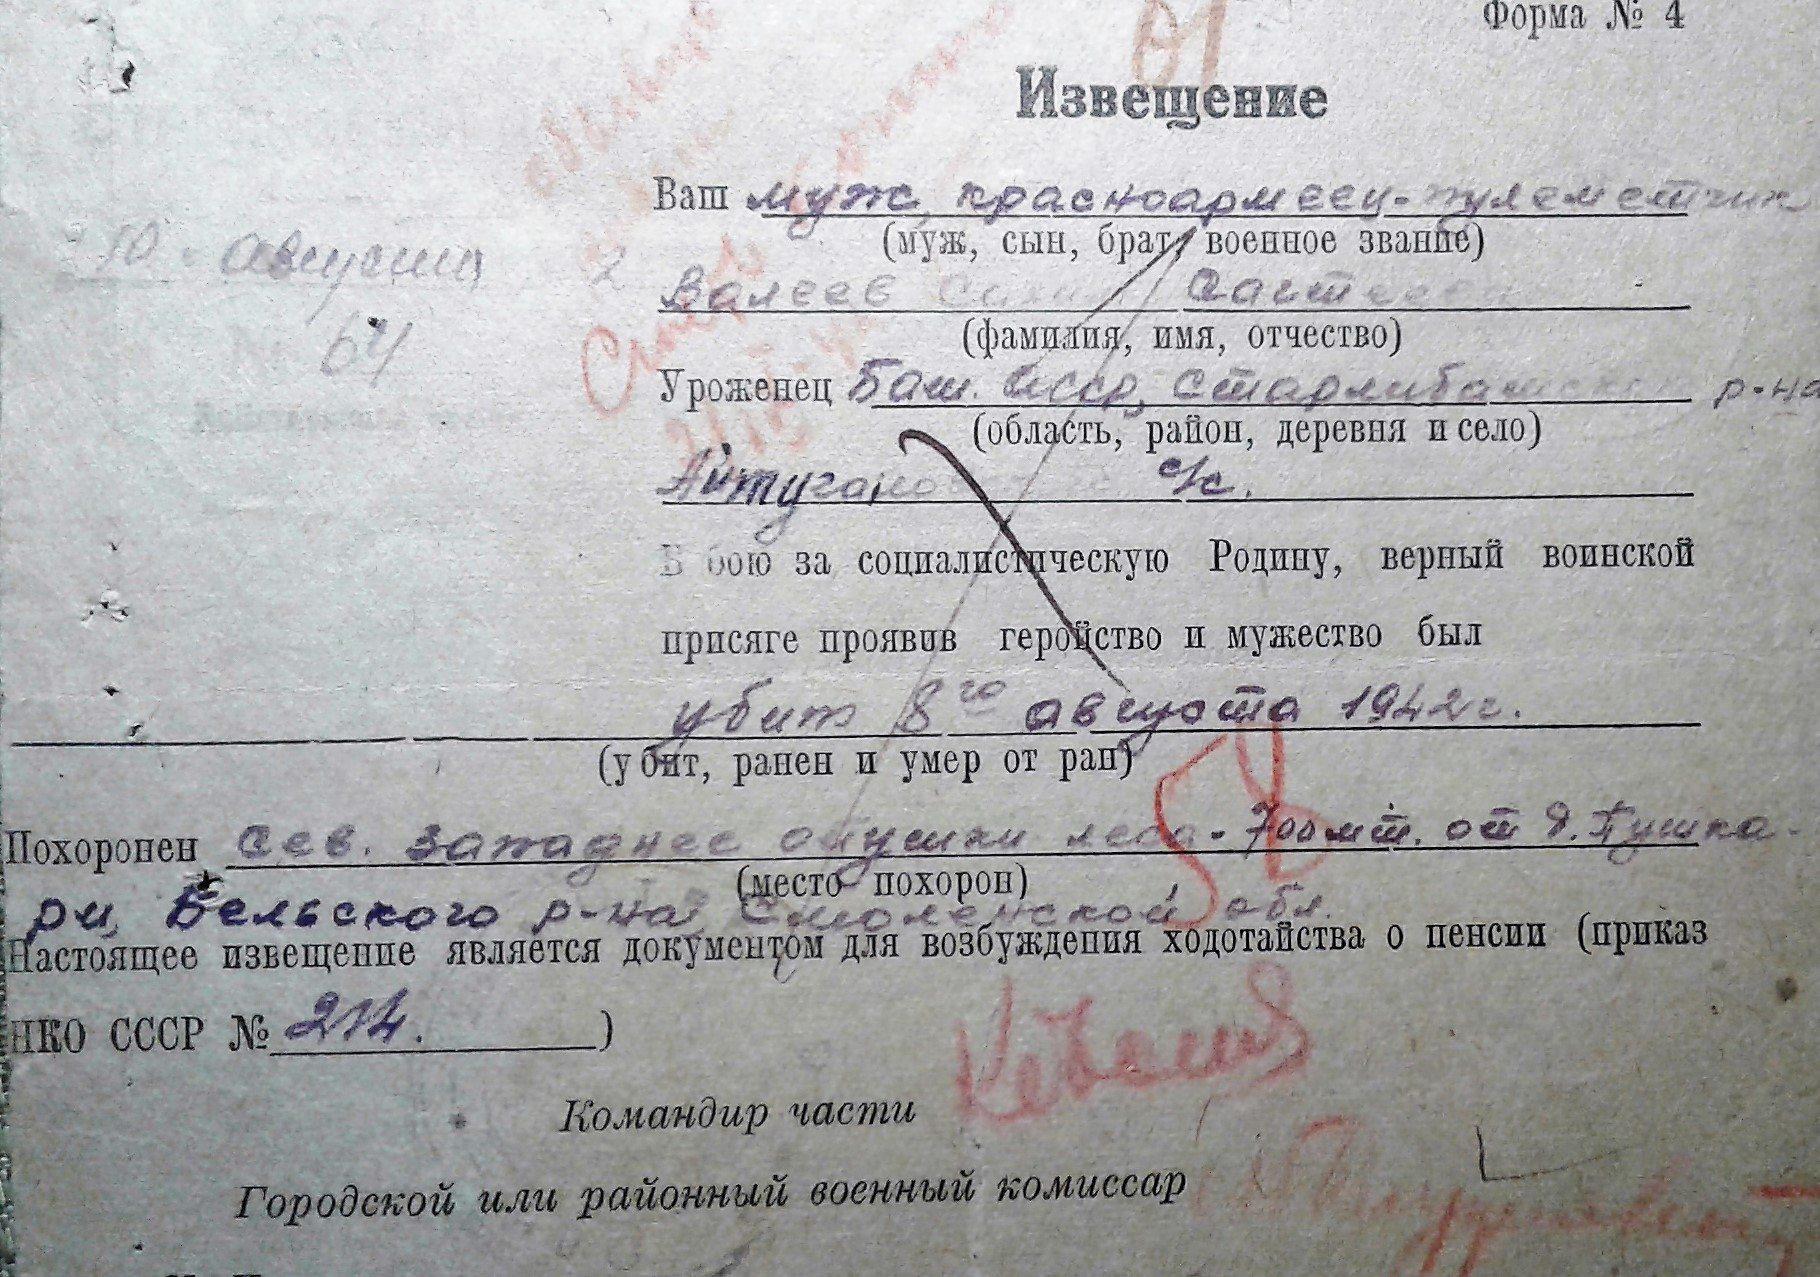 Форма № 4
Извещение
Ваш муж, красноармеец-пулеметчик
(муж, сын, брат, военное звание)
10 августа 2
Валеев
(фамилия, имя, отчество)
64
Уроженец Баш. АССР, Стерлибашевского р-на
(область, район, деревня и село)
Айтугановского с/с.
В бою за социалистическую Родину, верный воинской
присяге проявив геройство и мужество был
убит 8го августа 1942 г.
(убит, ранен и умер от ран)
Похоронен Сев. западнее опушки леса - 700 мт. от д. Пушка-
(место похорон)
ри, Бельского р-на, Смоленской обл.
Настоящее извещение является документом для возбуждения ходотайства о пенсии (приказ
НКО СССР № 214. )
Командир части
Городской или районный военный комиссар